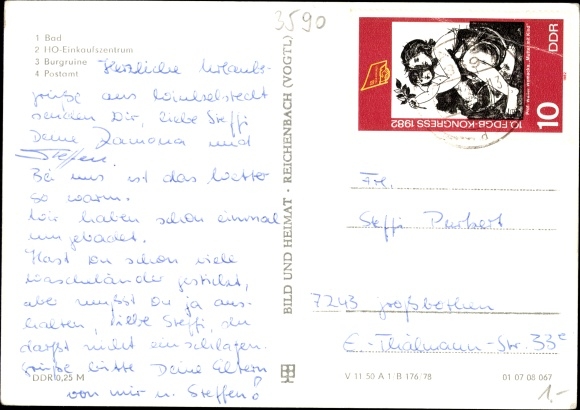 3590
1 Bad
2 HO-Einkaufszentrum
3 Burgruine
4 Postamt
Herzliche Urlaubs-
grüße aus
senden Dir, liebe Steffi
Deine Ramona und
Steffen.
Bei uns ist das Wetter
so warm.
Wir haben schon einmal
gebadet.
Hast Du schon viele
gestickt,
aber mußt Du ja aus-
halten, liebe Steffi, du
darfst nicht einschlagen.
Grüße bitte Deine Eltern
von mir u. Steffen!
DDR 0,25 M
BILD UND HEIMAT · REICHENBACH (VOGTL)
10. FDGB-KONGRESS 1982
DDR
10
Frl.
Steffi
7243 Großbothen
E.-Thälmann-Str. 33c
V 11 50 A 1/B 176/78
01 07 08 067
1,-